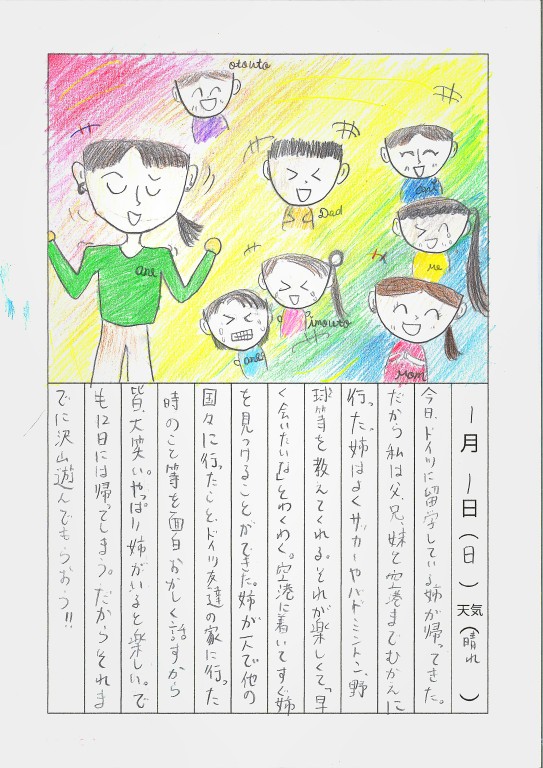 otouto
ane
Dad
ani
me
imouto
ane
Mom
一月一日(日)天気(晴れ)
今日、ドイツに留学している姉が帰ってきた。
だから私は父、兄、妹と空港までむかえに
行った。姉はよくサッカーやバドミントン、野
球等を教えてくれる。それが楽しくて「早
く会いたいな」とわくわく。空港に着いてすぐ姉
を見つけることができた。姉が一人で他の
国々に行ったこと、ドイツ友達の家に行った
時のこと等を面白おかしく話すから
皆、大笑い。やっぱり姉がいると楽しい。で
も12日には帰ってしまう。だからそれま
でに沢山遊んでもらおう!!